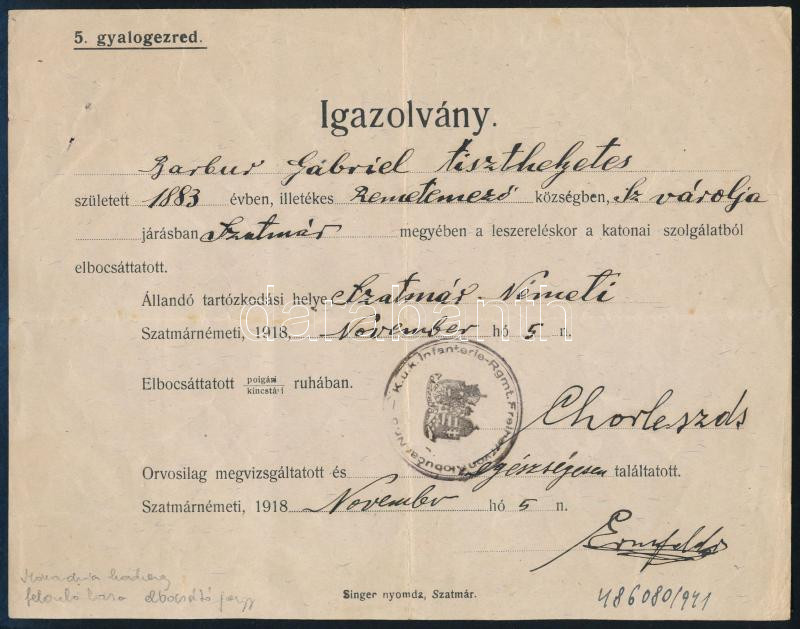 5. gyalogezred.
Igazolvány.
Barbur Gábriel tiszthelyetes
született 1883 évben, illetékes Remetemező községben, Sz váralja
járásban Szatmár megyében a leszereléskor a katonai szolgálatból
elbocsáttatott.
Állandó tartózkodási helye Szatmár-Németi
darabanth
Szatmárnémeti, 1918, November hó 5 n.
K.u.k. Infanterie-Rgmt. Freiherr von Klobučar Nr. 5
Elbocsáttatott polgári
kincstári ruhában.
Orvosilag megvizsgáltatott és egészségesen találtatott.
Szatmárnémeti, 1918 November hó 5 n.
elbocsátó
Singer nyomda, Szatmár.
486080/941